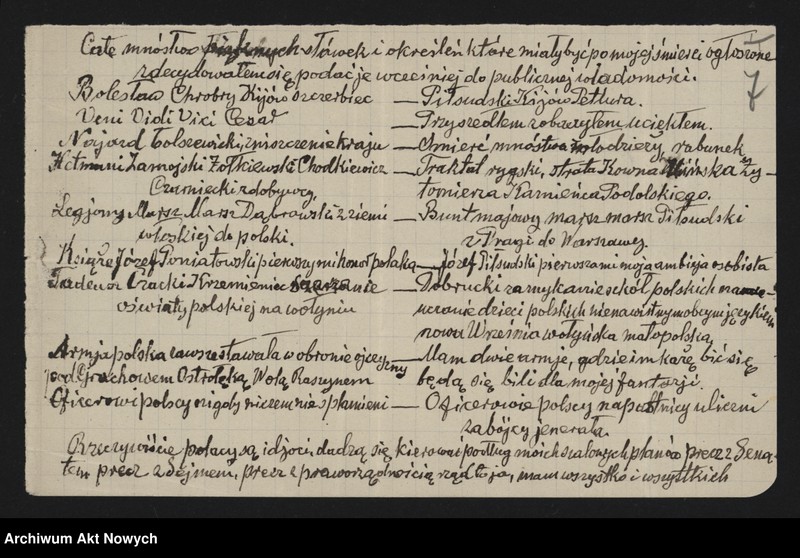 Całe mnóstwo pięknych słówek i określeń które miały być po mojej śmierci ogłoszone
zdecydowałem się podać je wcześniej do publicznej wiadomości.
7
Bolesław Chrobry Kijów Szczerbiec — Piłsudski Kijów Petlura.
Veni Vidi Vici Cezar — Przyszedłem zobaczyłem uciekłem.
Najazd bolszewicki, zniszczenie kraju — Śmierć mnóstwa młodzieży, rabunek
Hetmani Zamojski Żółkiewski Chodkiewicz — Traktat ryski, strata Kowna Mińska Ży-
Czarniecki zdobywcy, tomierza Kamieńca Podolskiego.
Legjony Marsz Marsz Dąbrowski z ziemi — Bunt majowy marsz marsz Piłsudski
włoskiej do polski. z Pragi do Warszawy.
Książę Józef Poniatowski pierwszym honor polaka — Józef Piłsudski pierwsza mi moja ambicja osobista
Tadeusz Czacki Krzemieniec — Dobrucki zamykanie szkół polskich
oświaty polskiej na wołyniu uczanie dzieci polskich nienawistnym obcym językiem
nowa Września wołyńska małopolska
Armja polska zawsze stawała w obronie ojczyzny — Mam dwie armje, gdzie im każę bić się
pod Grochowem Ostrołęką, Wolą Raszynem będą się bili dla mojej fantazji.
Oficerowi polscy nigdy niczem nie splamieni — Oficerowie polscy napastnicy uliczni
zabójcy jenerała.
Rzeczywiście polacy są idjoci, dadzą się kierować podług moich szalonych planów precz z Sena-
tem precz z Sejmem, precz z praworządnością rząd to ja, mam wszystko i wszystkich
Archiwum Akt Nowych